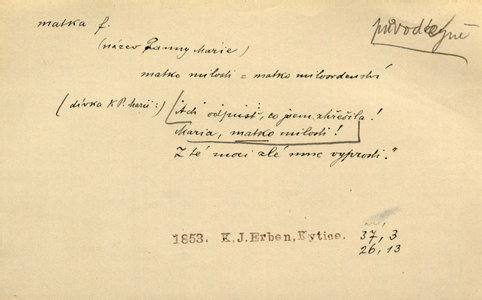 matka f.
(název Panny Marie)
matko milosti = matko milosrdenství
(dívka K P. Marii:) "Ach odpusť, co jsem zhřešila!
Maria, matko milosti!
Z té moci zlé mne vyprosti."
1853. K.J.Erben, Kytice. 37, 3
26, 13